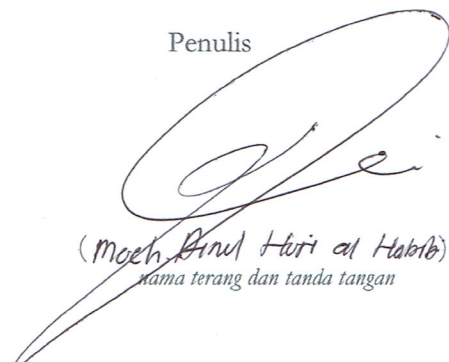 Penulis
(Moch. Ainul Huri al Habib)
nama terang dan tanda tangan